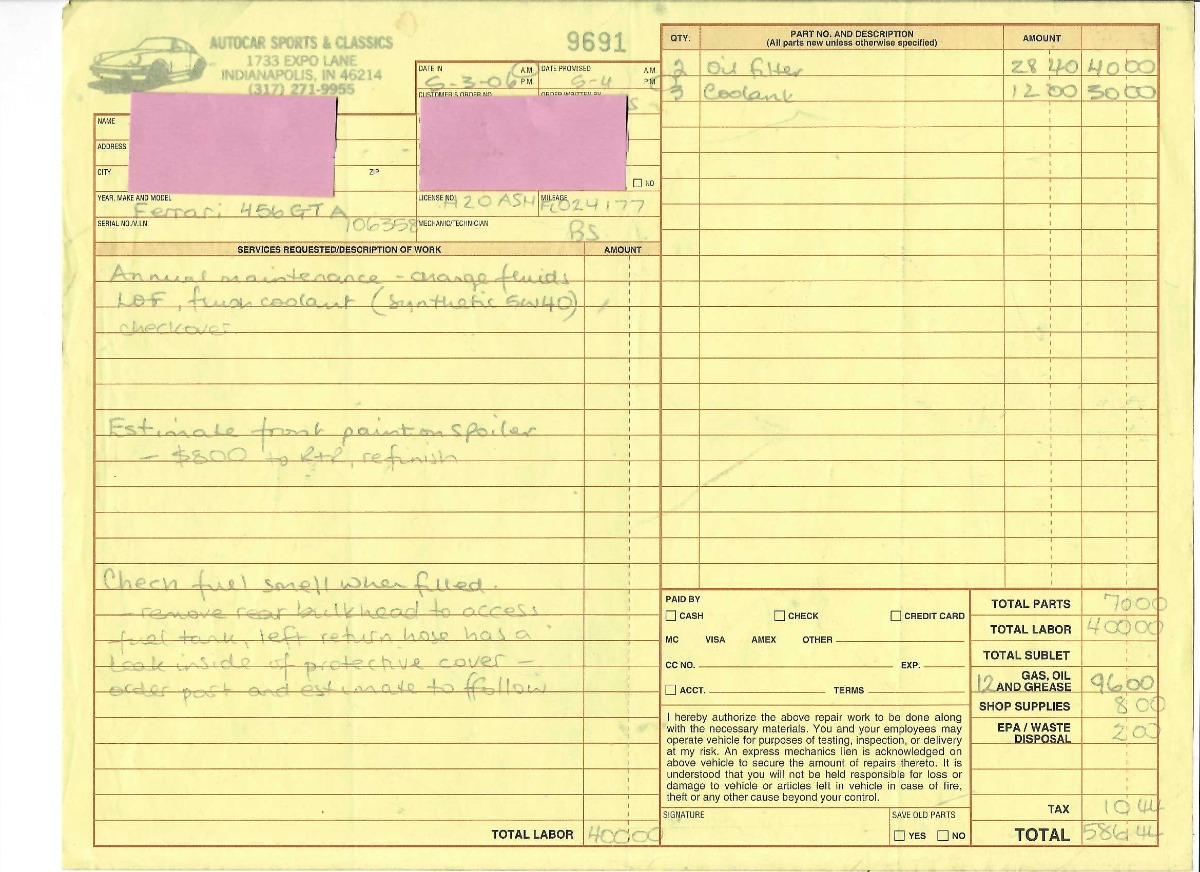 AUTOCAR SPORTS & CLASSICS
1733 EXPO LANE
INDIANAPOLIS, IN 46214
(317) 271-9955
9691
DATE IN 5-3-06 A.M. P.M.
DATE PROMISED 5-4 A.M. P.M.
CUSTOMER'S ORDER NO.
ORDER WRITTEN BY
NAME
ADDRESS
CITY ZIP
NO
YEAR, MAKE AND MODEL Ferrari 456 GTA
LICENSE NO. MILEAGE 024177
SERIAL NO./V.I.N. 106358
MECHANIC/TECHNICIAN BS
SERVICES REQUESTED/DESCRIPTION OF WORK AMOUNT
Annual maintenance - change fluids
LOF, flush coolant (Synthetic 5W40)
checkover
Estimate front paint on spoiler
- $800 to R+R, refinish
Check fuel smell when filled.
- remove rear bulkhead to access
fuel tank, left return hose has a
leak inside of protective cover -
order part and estimate to ffollow
TOTAL LABOR 400 00
QTY. PART NO. AND DESCRIPTION AMOUNT
(All parts new unless otherwise specified)
2 Oil filter 28 40 40 00
3 Coolant 12 00 30 00
PAID BY
CASH CHECK CREDIT CARD
MC VISA AMEX OTHER
CC NO. EXP.
ACCT. TERMS
I hereby authorize the above repair work to be done along
with the necessary materials. You and your employees may
operate vehicle for purposes of testing, inspection, or delivery
at my risk. An express mechanics lien is acknowledged on
above vehicle to secure the amount of repairs thereto. It is
understood that you will not be held responsible for loss or
damage to vehicle or articles left in vehicle in case of fire,
theft or any other cause beyond your control.
SIGNATURE
SAVE OLD PARTS
YES NO
TOTAL PARTS 70 00
TOTAL LABOR 400 00
TOTAL SUBLET
12 GAS, OIL AND GREASE 96 00
SHOP SUPPLIES 8 00
EPA / WASTE DISPOSAL 2 00
TAX 10 44
TOTAL 586 44